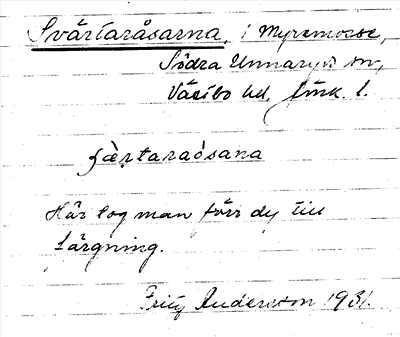 Svärtaråsarna, i Myremosse,
Södra Unnaryds sn,
Västbo hd, Jönk. l.
Här tog man förr dy till
färgning.
Fritz Andersson 1931.